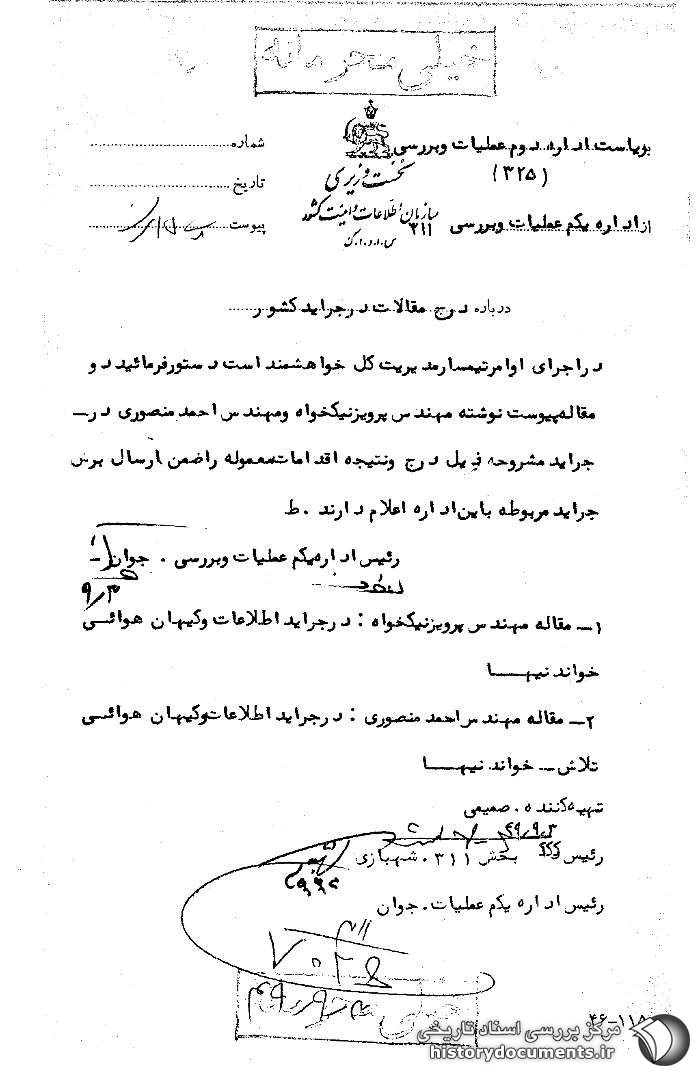 خیلی محرمانه
بریاست اداره دوم عملیات وبررسی
(۳۲۵)
از اداره یکم عملیات وبررسی ۳۱۱
نخست وزیری
سازمان اطلاعات و امنیت کشور
س.ا.و.ا.ک
شماره
تاریخ
پیوست
درباره درج مقالات در جراید کشور
در اجرای اوامر تیمسار مدیریت کل خواهشمند است دستور فرمائید دو
مقاله پیوست نوشته مهندس پرویز نیکخواه ومهندس احمد منصوری در
جراید مشروحه ذیل درج ونتیجه اقدامات معموله را ضمن ارسال برش
جراید مربوطه باین اداره اعلام دارند . ط
رئیس اداره یکم عملیات وبررسی . جوان
۹/۳
۱ــ مقاله مهندس پرویز نیکخواه : در جراید اطلاعات وکیهان هوائی
خواندنیها
۲ــ مقاله مهندس احمد منصوری : در جراید اطلاعات وکیهان هوائی
تلاش ــ خواندنیها
تهیه کننده . صمیمی
۴۹/۹/۳
رئیس بخش ۳۱۱ . شهبازی
رئیس اداره یکم عملیات . جوان
خیلی محرمانه
۴۶-۱۱۸
مرکز بررسی اسناد تاریخی
historydocuments.ir